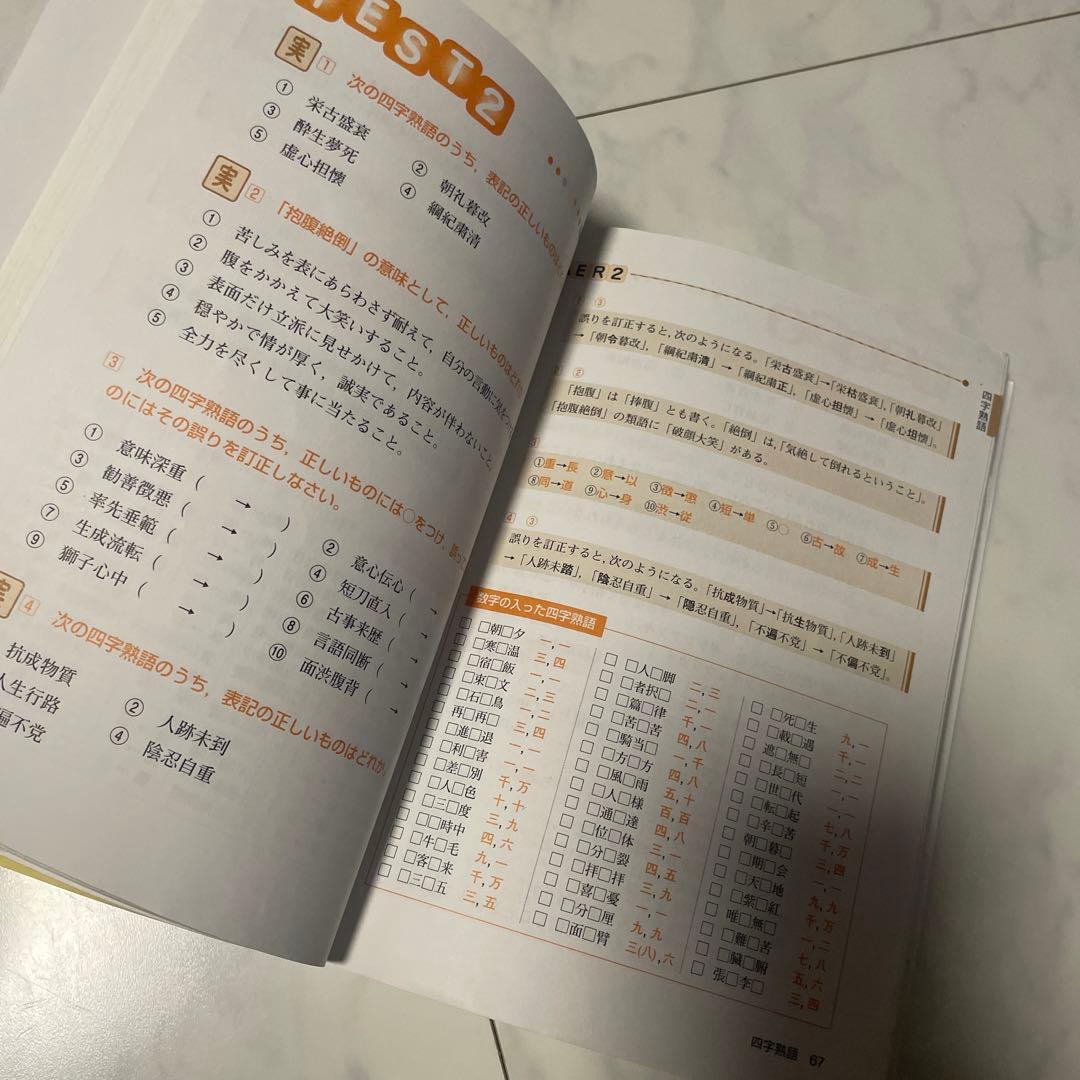 TEST 2
実 1 次の四字熟語のうち，表記の正しいものは
① 栄古盛衰 ② 朝礼暮改
③ 酔生夢死 ④ 綱紀粛清
⑤ 虚心担懐
実 2 「抱腹絶倒」の意味として，正しいものはどれ
① 苦しみを表にあらわさず耐えて，自分の言動に気を
② 腹をかかえて大笑いすること。
③ 表面だけ立派に見せかけて，内容が伴わないこと。
④ 穏やかで情が厚く，誠実であること。
⑤ 全力を尽くして事に当たること。
3 次の四字熟語のうち，正しいものには○をつけ，誤っ
のにはその誤りを訂正しなさい。
① 意味深重（ → ） ② 意心伝心（ →
③ 勧善徴悪（ → ） ④ 短刀直入（ →
⑤ 率先垂範（ → ） ⑥ 古事来歴（ →
⑦ 生成流転（ → ） ⑧ 言語同断（ →
⑨ 獅子心中（ → ） ⑩ 面渋腹背（ →
実 4 次の四字熟語のうち，表記の正しいものはどれか。
抗成物質 ② 人跡未到
人生行路 ④ 陰忍自重
遍不党
ER2
③
誤りを訂正すると，次のようになる。「栄古盛衰」→「栄枯盛衰」，「朝礼暮改」
→「朝令暮改」，「綱紀粛清」→「綱紀粛正」，「虚心担懐」→「虚心坦懐」。
②
「抱腹」は「捧腹」とも書く。「絶倒」は，「気絶して倒れるということ」。
「抱腹絶倒」の類語に「破顔大笑」がある。
①重→長 ②意→以 ③徴→懲 ④短→単 ⑤○ ⑥古→故 ⑦成→生
⑧同→道 ⑨心→身 ⑩渋→従
4 ③
誤りを訂正すると，次のようになる。「抗成物質」→「抗生物質」，「人跡未到」
→「人跡未踏」，「陰忍自重」→「隠忍自重」，「不遍不党」→「不偏不党」。
四字熟語
数字の入った四字熟語
□朝□夕 一，一
□寒□温 三，四
□宿□飯 一，一
□東□文 二，三
□石□鳥 一，二
再□再□ 三，四
□進□退 一，一
□利□害 一，一
□差□別 千，万
□人□色 十，十
□三□度 三，九
□□時中 四，六
□牛□毛 九，一
□客□来 千，万
□三□五 三，五
□人□脚 二，三
□者択□ 二，一
□篇□律 千，一
□苦□苦 四，八
□騎当□ 一，千
□方□方 四，八
□風□雨 五，十
□人□様 百，百
□通□達 四，八
□位□体 三，一
□分□裂 四，五
□拝□拝 三，九
□喜□憂 一，一
□分□厘 九，九
□面□臂 三(八)，六
□死□生 九，一
□載□遇 千，一
遮□無□ 二，二
□長□短 一，一
□世□代 一，一
□転□起 七，八
□辛□苦 千，万
朝□暮□ 三，四
□期□会 一，一
□天□地 一，一
□紫□紅 千，万
唯□無□ 一，二
□難□苦 七，八
□臓□腑 五，六
張□李□ 三，四
四字熟語 67